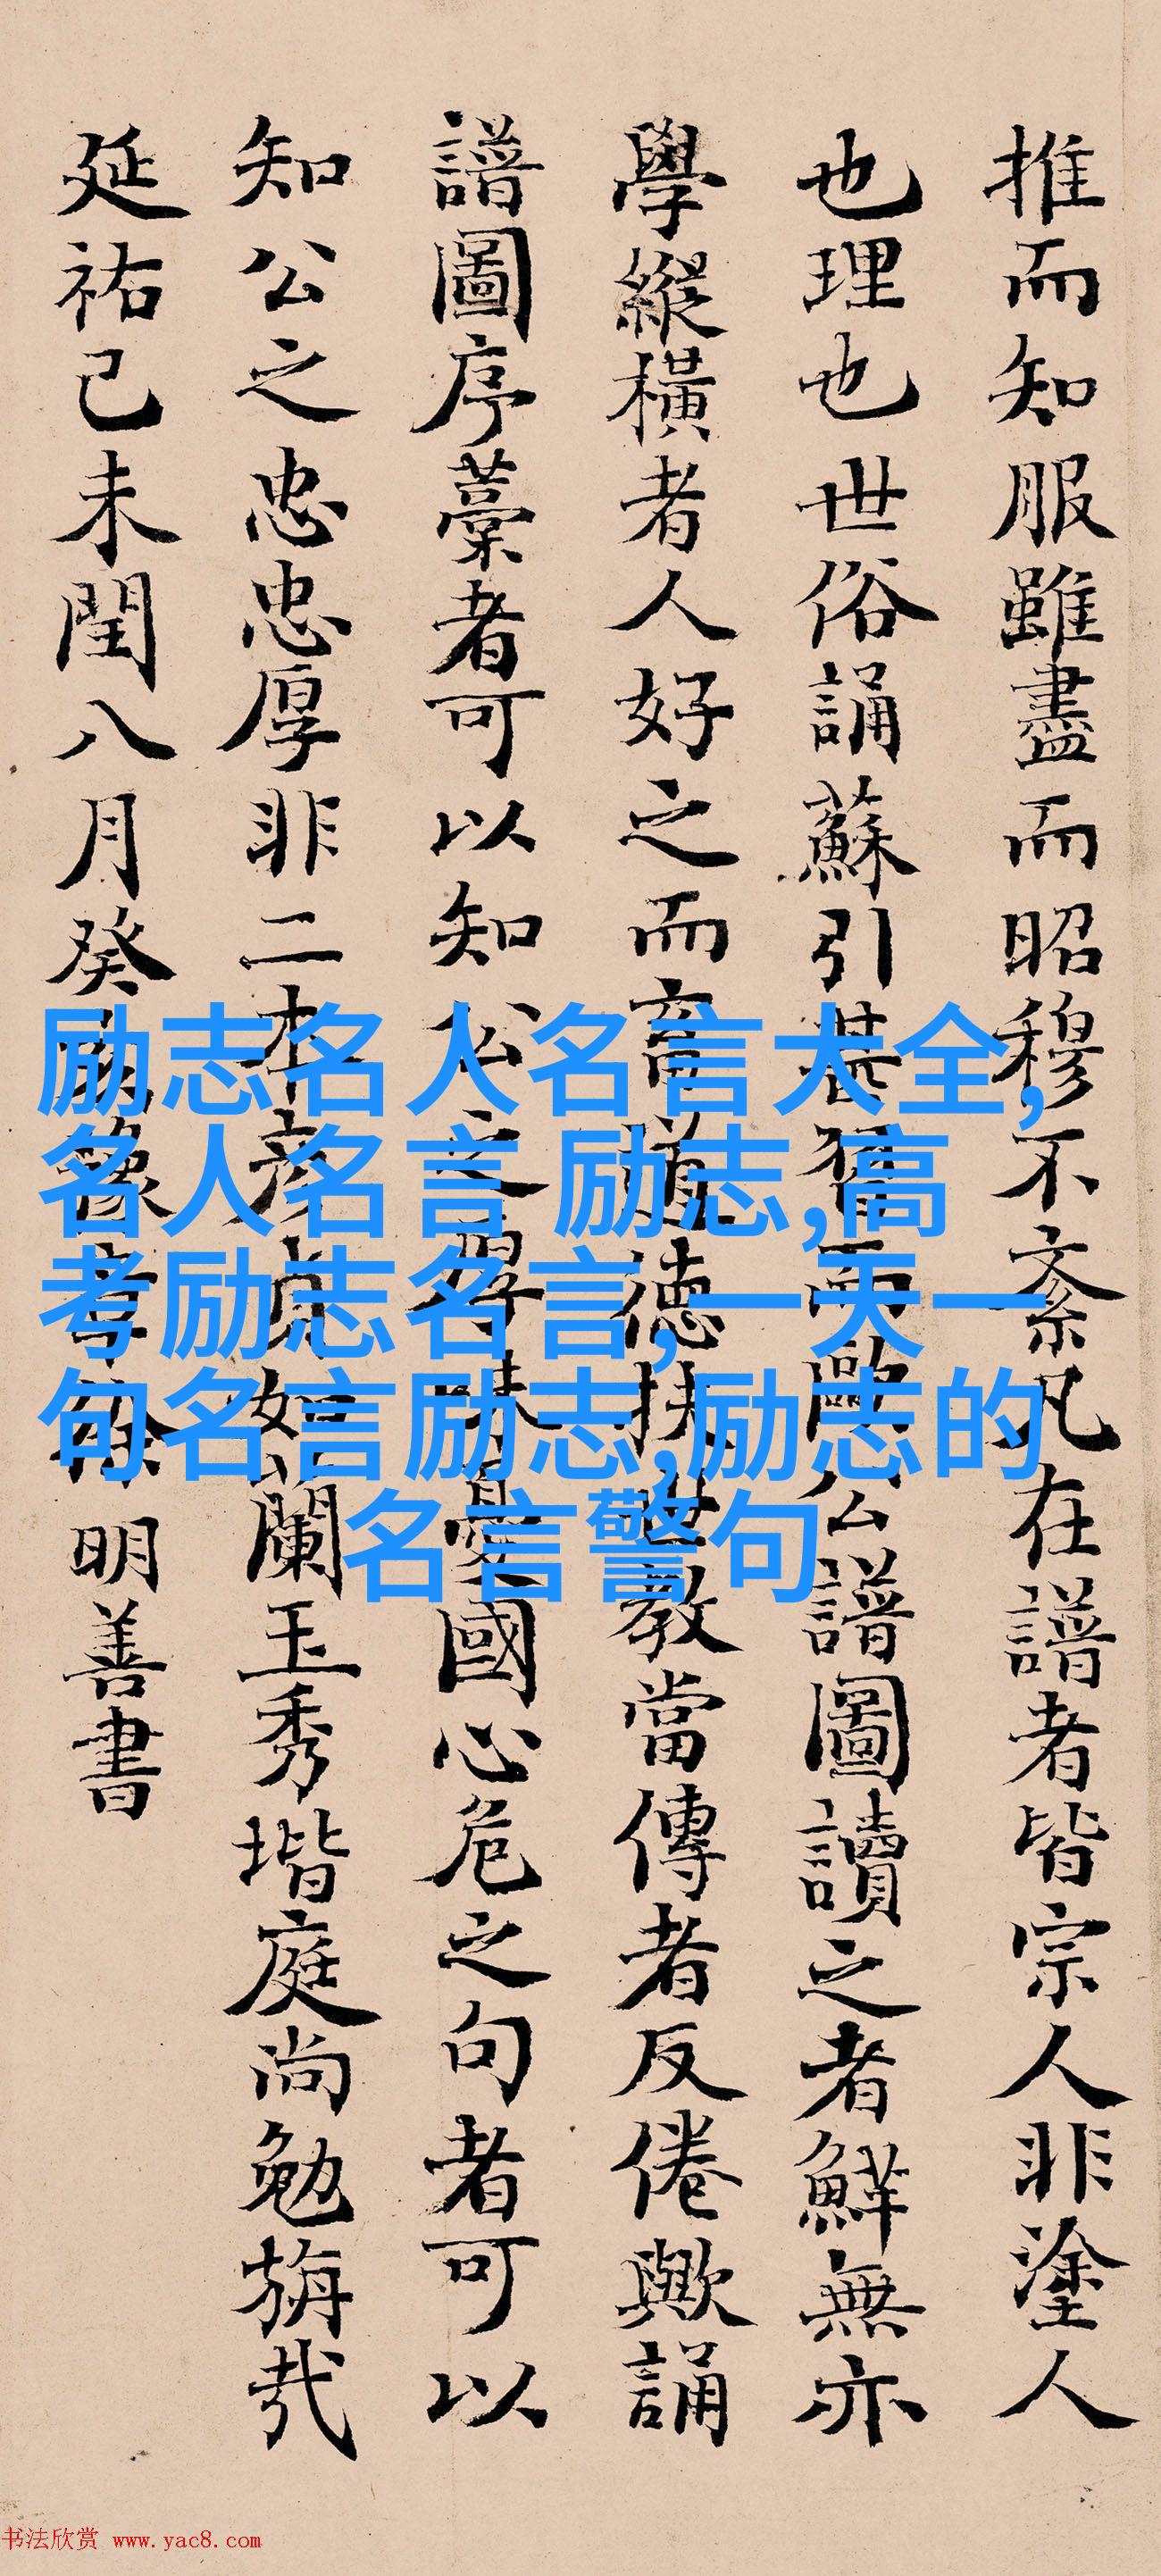 推而知服雖盡而昭穆不紊凡在譜者皆宗人非塗人
也理也世俗誦蘇引甚習而歐公譜圖讀之者鮮無亦
學縱橫者人好之而言道德扶世教當傳者反倦歟誦
譜圖序藁者可以知公之學誦憂國心危之句者可以
知公之忠忠厚非二本彥貞如蘭玉秀堦庭尚勉旃哉
延祐己未閏八月癸豫章徐明善書
励志名人名言大全,
名人名言 励志,高
考励志名言,一天一
句名言励志,励志的
名言警句
书法欣赏 www.yac8.com